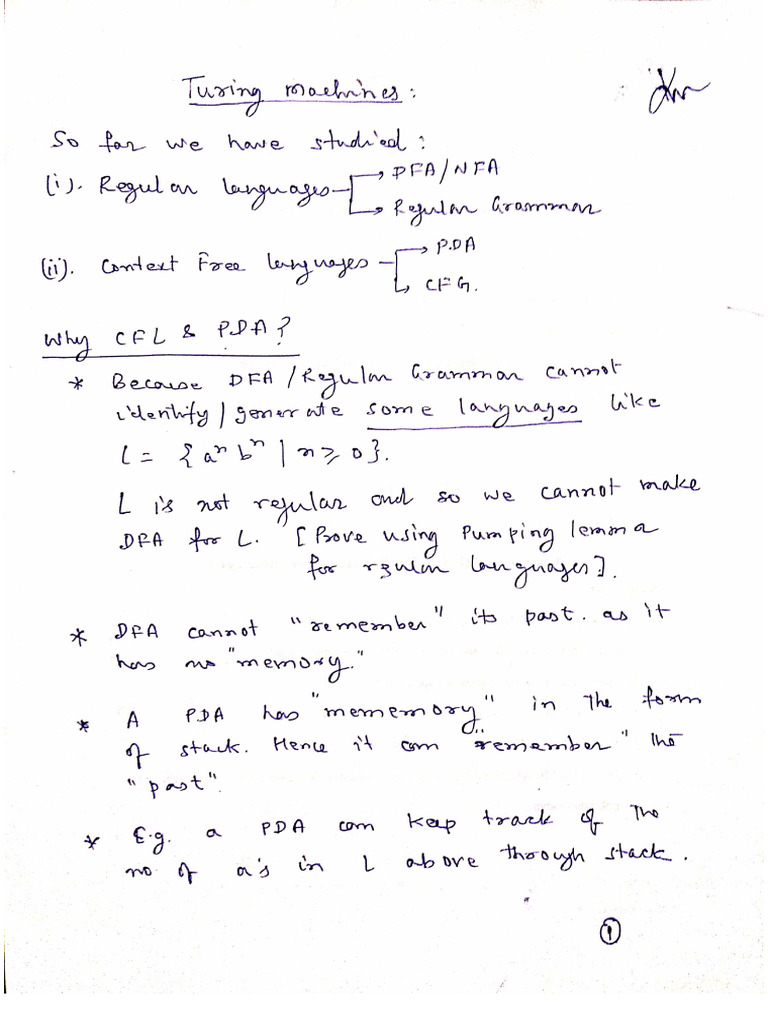 Turing machines:
So far we have studied:
(i). Regular languages → DFA/NFA
→ Regular Grammar
(ii). Context Free languages → P.DA
→ CFG.
Why CFL & PDA?
* Because DFA/Regular Grammar cannot
identify/generate some languages like
L = {aⁿ bⁿ | n ≥ 0}.
L is not regular and so we cannot make
DFA for L. [Prove using Pumping lemma
for regular languages].
* DFA cannot "remember" its past. as it
has no "memory."
* A PDA has "mememory" in the form
of stack. Hence it can "remember" the
"past".
* E.g. a PDA can keep track of the
no of a's in L above through stack.
1